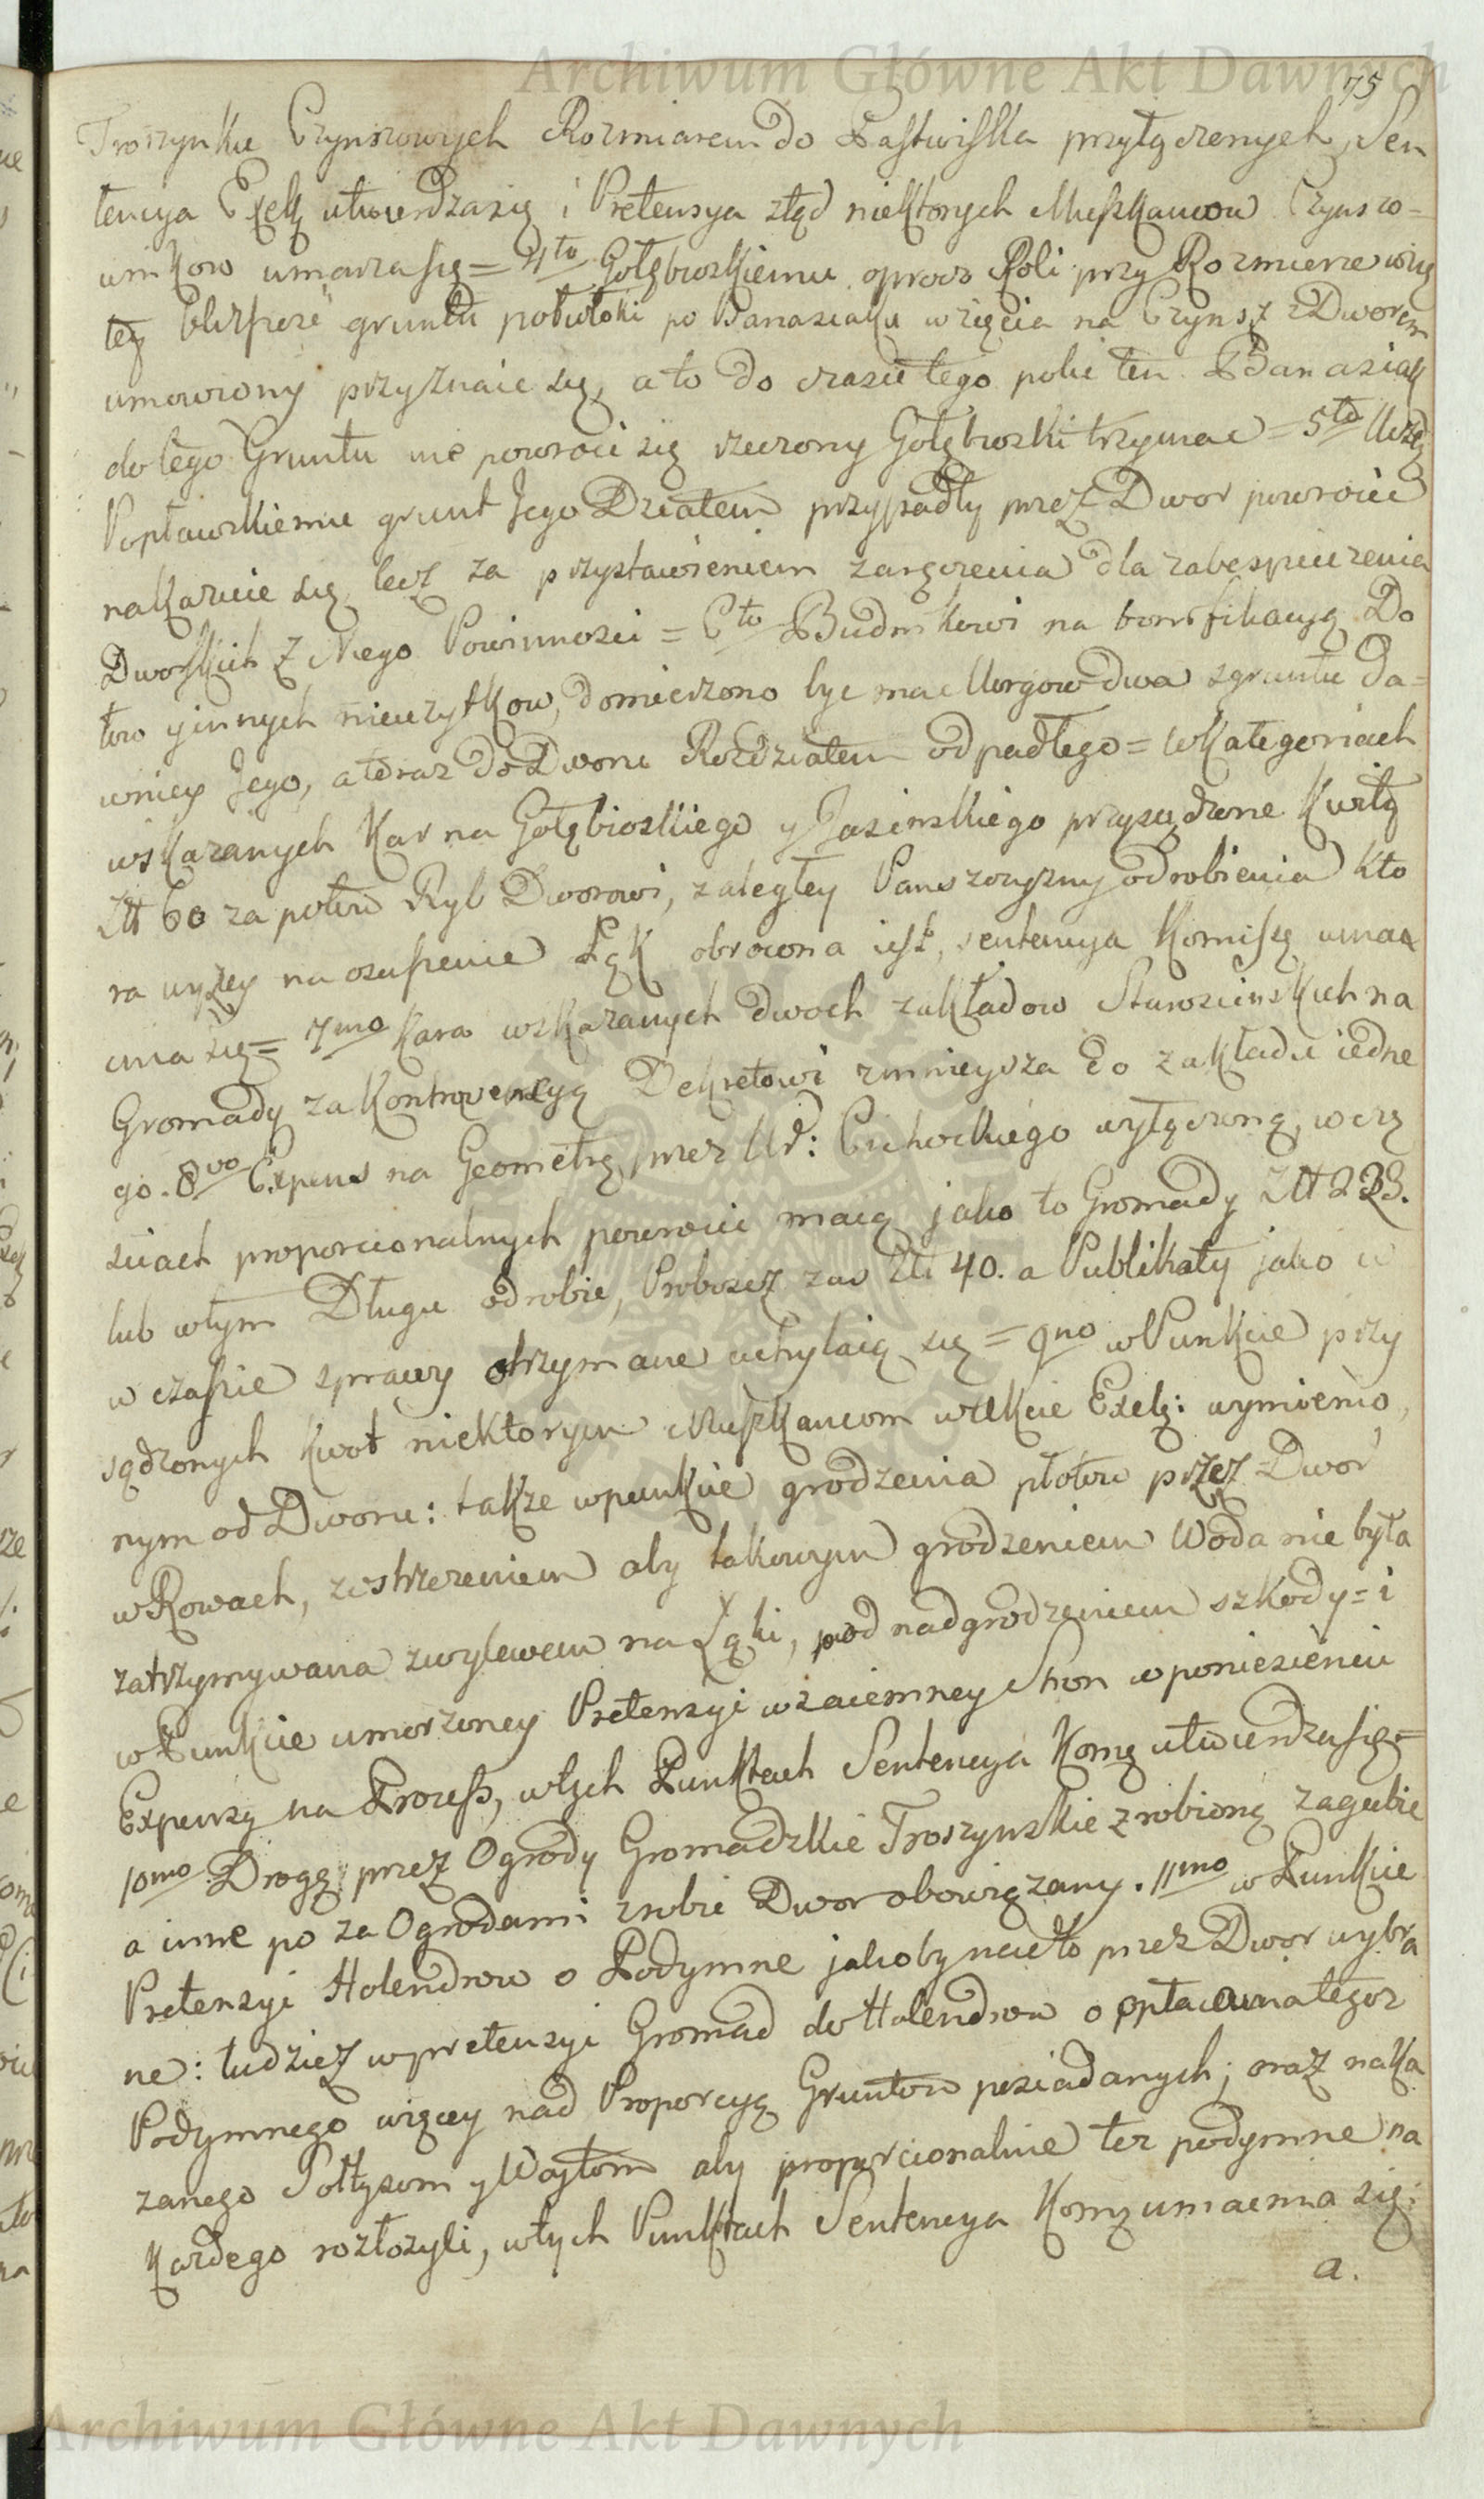 Archiwum Główne Akt Dawnych
75
Troszynku Czynszowych Rozmiarem do Pastwiska przyłączonych, Sen
tencya Exek utwierdza się i Pretensya ztąd niektorych Mieszkancow Czynszo=
wnikow umarza się = 4to Gołębioskiemu oprocz Roli przy Rozmierze wzię
tey blizsze gruntu połwłoki po Banasiaku wzięcia na Czynsz z Dworem
umowiony przyznaie się, a to do czasu tego poki ten Banasiak
do tego Gruntu nie powroci się rzeczony Gołębioski trzymac = 5to Urzę
Popławskiemu grunt Jego Działem przypadły przez Dwor powrocic
nakazuie się, lecz za przystawieniem zaręczenia dla zabespieczenia
Dworskich z Niego Powinnosci = 6to Budnikowi na bonifikacyą Do
łow y innych nieuzytkow, domierzono byc ma Morgow dwa z gruntu Da=
wniey Jego, a teraz do Dworu Rozdziałem odpadłego = w Kategoriach
wskazanych Kar na Gołębioskiego y Jasinskiego przysądzone Kwotę
Złt 60 za połow Ryb Dworowi, zaległey Panszczyzny odrobienia kto
ra wyzey na osuszenie Łąk obrocona iest, sentencya Komisy umac
cnia się = 7mo Kara wskazanych dwoch zakładow Staroscinskich na
Gromady za Kontrovencyą Dekretowi zmnieysza do zakładu iedne
go. 8vo Expens na Geometrę, przez Ur: Cichockiego wyłączoną, w czę
sciach proporcionalnych powrocic maią jako to Gromady Złt 233.
lub w tym Długu odrobic, Proboszcz zas Złt 40. a Publikaty jako w
w czasie sprawy otrzymane uchylaią się = 9no w Punkcie przy
sądzonych Kwot niektorym Mieszkancom w Akcie Exek: wymienio,
nym od Dworu: takze w punkcie grodzenia płotow przez Dwor
w Rowach, z ostrzezeniem aby takowym grodzeniem Woda nie była
zatrzymywana z wylewem na Łąki, pod nadgrodzeniem szkody = i
w Punkcie umorzoney Pretensyi wzaiemney Stron w poniesieniu
Expensy na Process, w tych Punktach Sentencya Komę utwierdza się =
10mo Drogę przez Ogrody Gromadzkie Troszynskie zrobioną zagubic
a inne po za Ogrodami zrobic Dwor obowiązany. 11mo w Punkcie
Pretensyi Holendrow o Podymne jakoby nadto przez Dwor wybra
ne: tudziez w pretensyi Gromad do Holendrow o opłacenia tegoz
Podymnego więcey nad Proporcyą Gruntow posiadanych; oraz naka
zanego Sołtysom y Woytom aby proporcionalnie tez podymne na
Kazdego rozłozyli, w tych Punktach Sentencya Komę umacnia się:
a.
Archiwum Główne Akt Dawnych